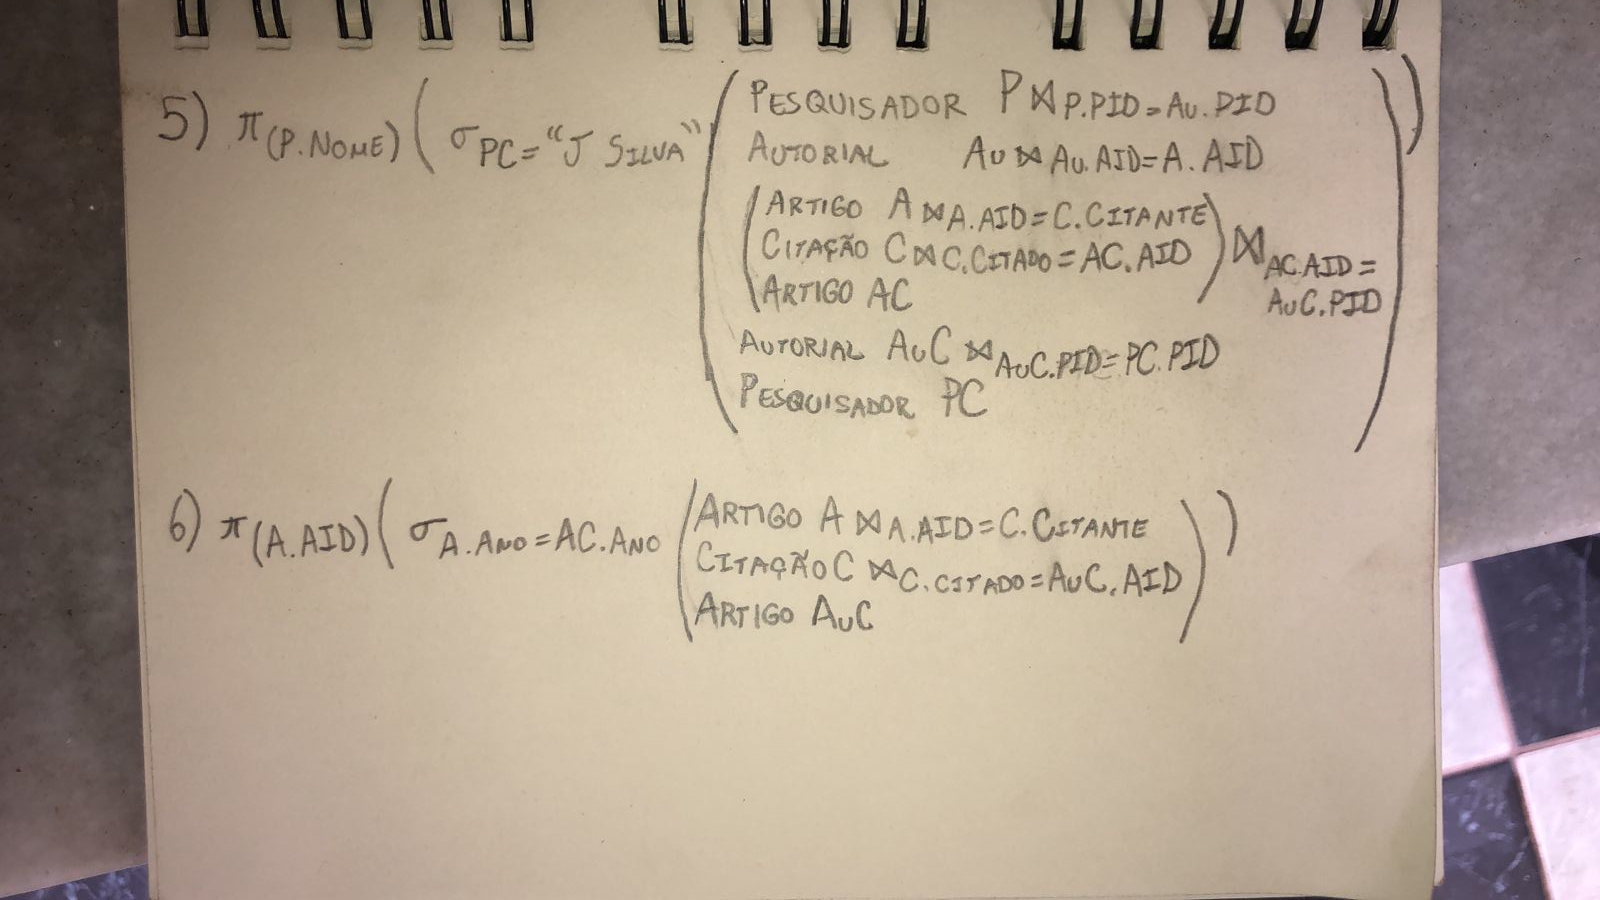 5) π(P.NOME) ( σ PC="J SILVA" ( PESQUISADOR P ⋈ P.PID=AU.PID
AUTORIAL AU ⋈ AU.AID=A.AID
( ARTIGO A ⋈ A.AID=C.CITANTE
CITAÇÃO C ⋈ C.CITADO=AC.AID
ARTIGO AC ) ⋈ AC.AID=
AUC.PID
AUTORIAL AUC ⋈ AUC.PID=PC.PID
PESQUISADOR PC ) )
6) π(A.AID) ( σ A.ANO=AC.ANO ( ARTIGO A ⋈ A.AID=C.CITANTE
CITAÇÃO C ⋈ C.CITADO=AUC.AID
ARTIGO AUC ) )